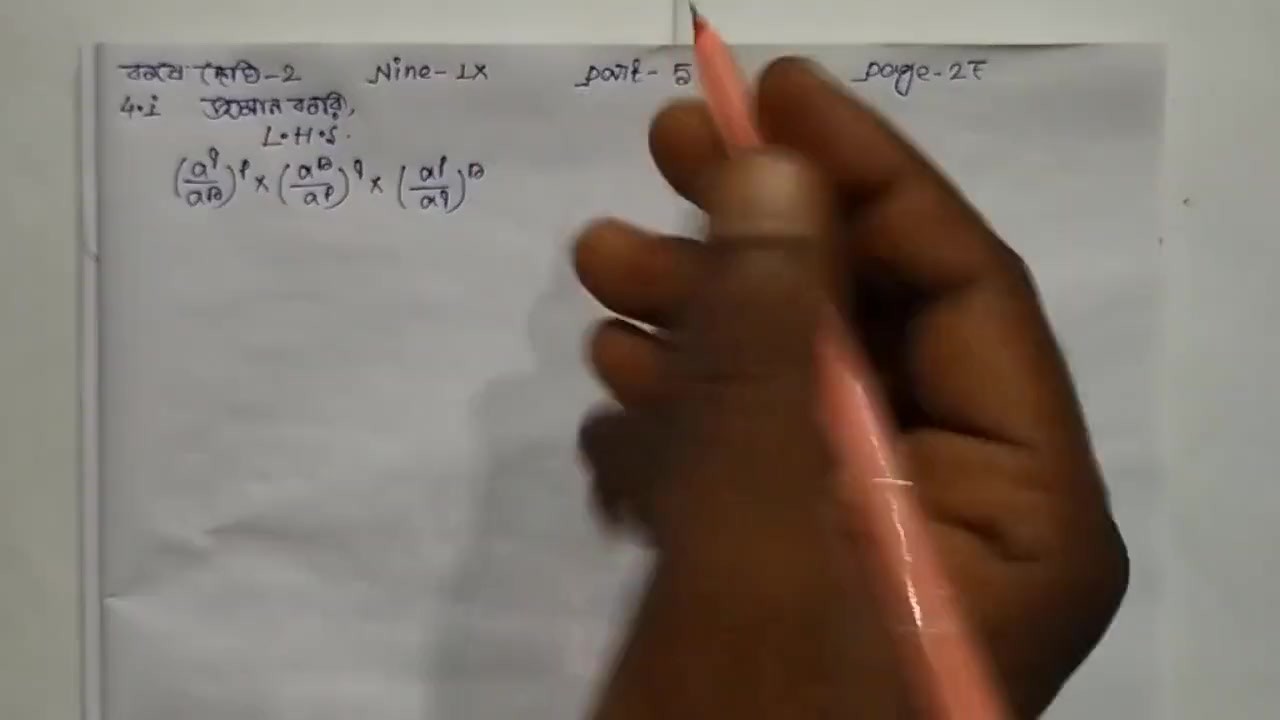 কষে দেখি-2 Nine-IX part-5 page-27
4.i প্রমাণ করি,
L.H.S.
(a^q/a^r)^p × (a^r/a^p)^q × (a^p/a^q)^r